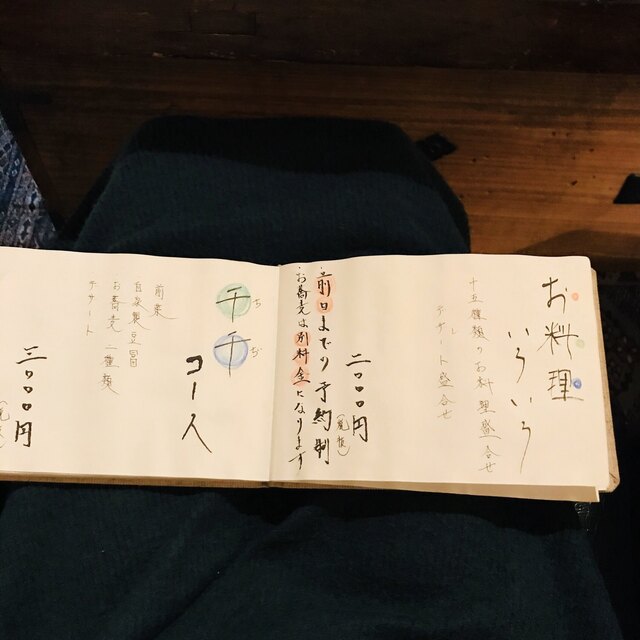 お料理
いろいろ
十五種類のお料理盛合せ
と
デザート盛合せ
二〇〇〇円
(税抜)
前日までの予約制
お蕎麦は別料金になります
千千
ちぢ
コース
前菜
自家製豆冨
お蕎麦二種類
デザート
三〇〇〇円
(税抜)